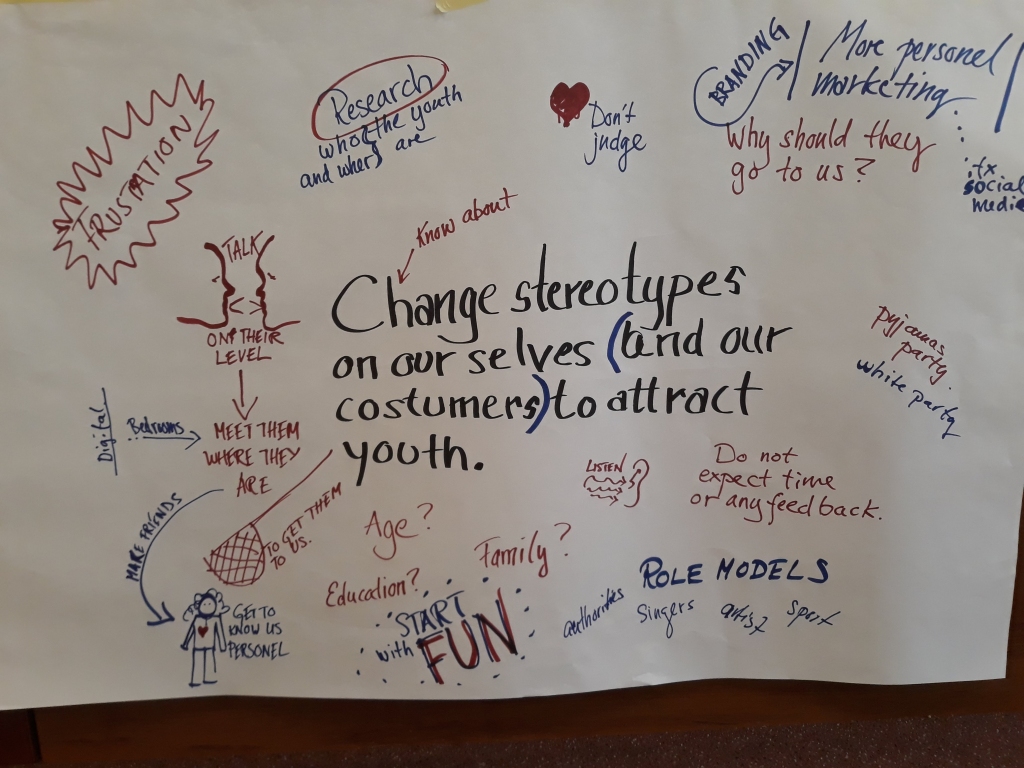 FRUSTRATION
Research
who the youth
and where are
Don't
judge
BRANDING
More personel
marketing
Why should they
go to us?
social
media
TALK
ON THEIR
LEVEL
Know about
Change stereotypes
on our selves (and our
costumers) to attract
youth.
pyjamas
party.
white party
Digital
Bedrooms
MEET THEM
WHERE THEY
ARE
MAKE FRIENDS
TO GET THEM
TO US.
GET TO
KNOW US
PERSONEL
Age?
Education?
Family?
START
with FUN
LISTEN
Do not
expect time
or any feedback.
ROLE MODELS
authorities
Singers
artist
sport